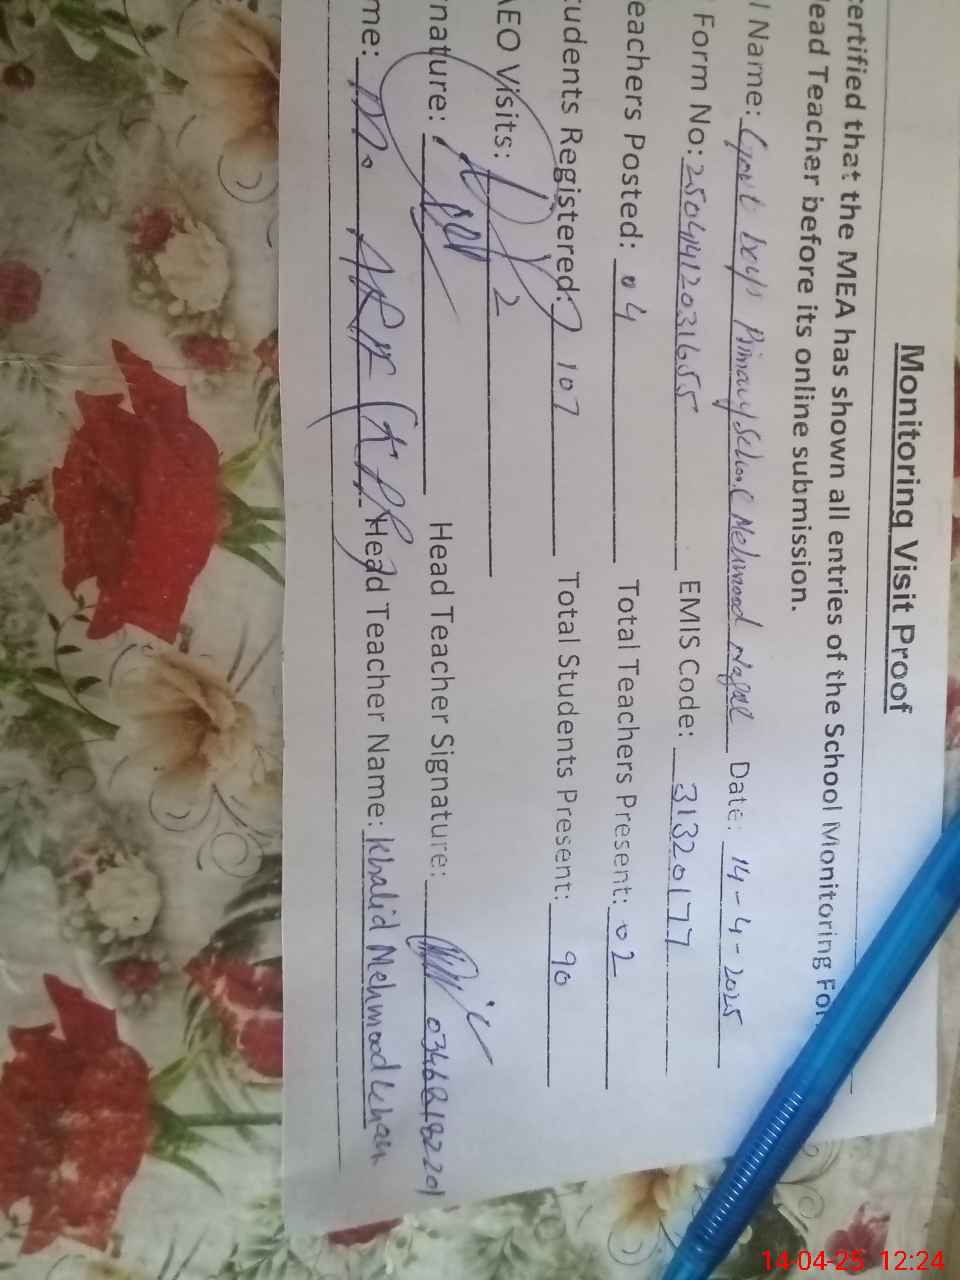 Monitoring Visit Proof
certified that the MEA has shown all entries of the School Monitoring For
lead Teacher before its online submission.
l Name: Govt boys Primary School Mehmood Date: 14-4-2025
Form No: 2504141203165 EMIS Code: 31320177
eachers Posted: 04 Total Teachers Present: 02
tudents Registered: 107 Total Students Present: 90
AEO Visits: 2
nature: Head Teacher Signature: 
me: M. Head Teacher Name: Khalid Mehmood Khan
14-04-25 12:24